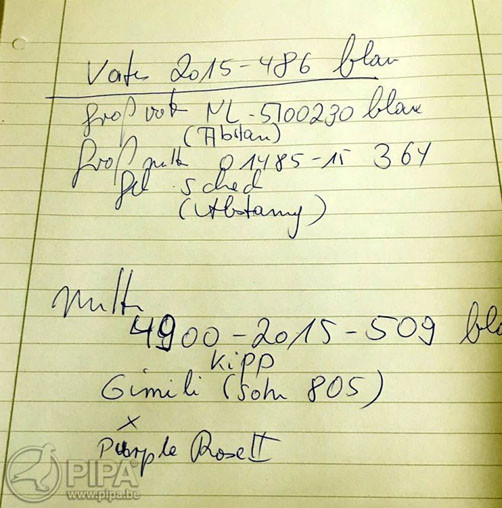 Vater 2015-486 blau
Großvater NL-5100230 blau
(Abstam)
Großmutter 01485-15 364
gesched
(Abstamg)
Mutter
4900-2015-509 bla
Kipp
Gimili (Sohn 805)
x
Purple Rose II
PIPA
www.pipa.be